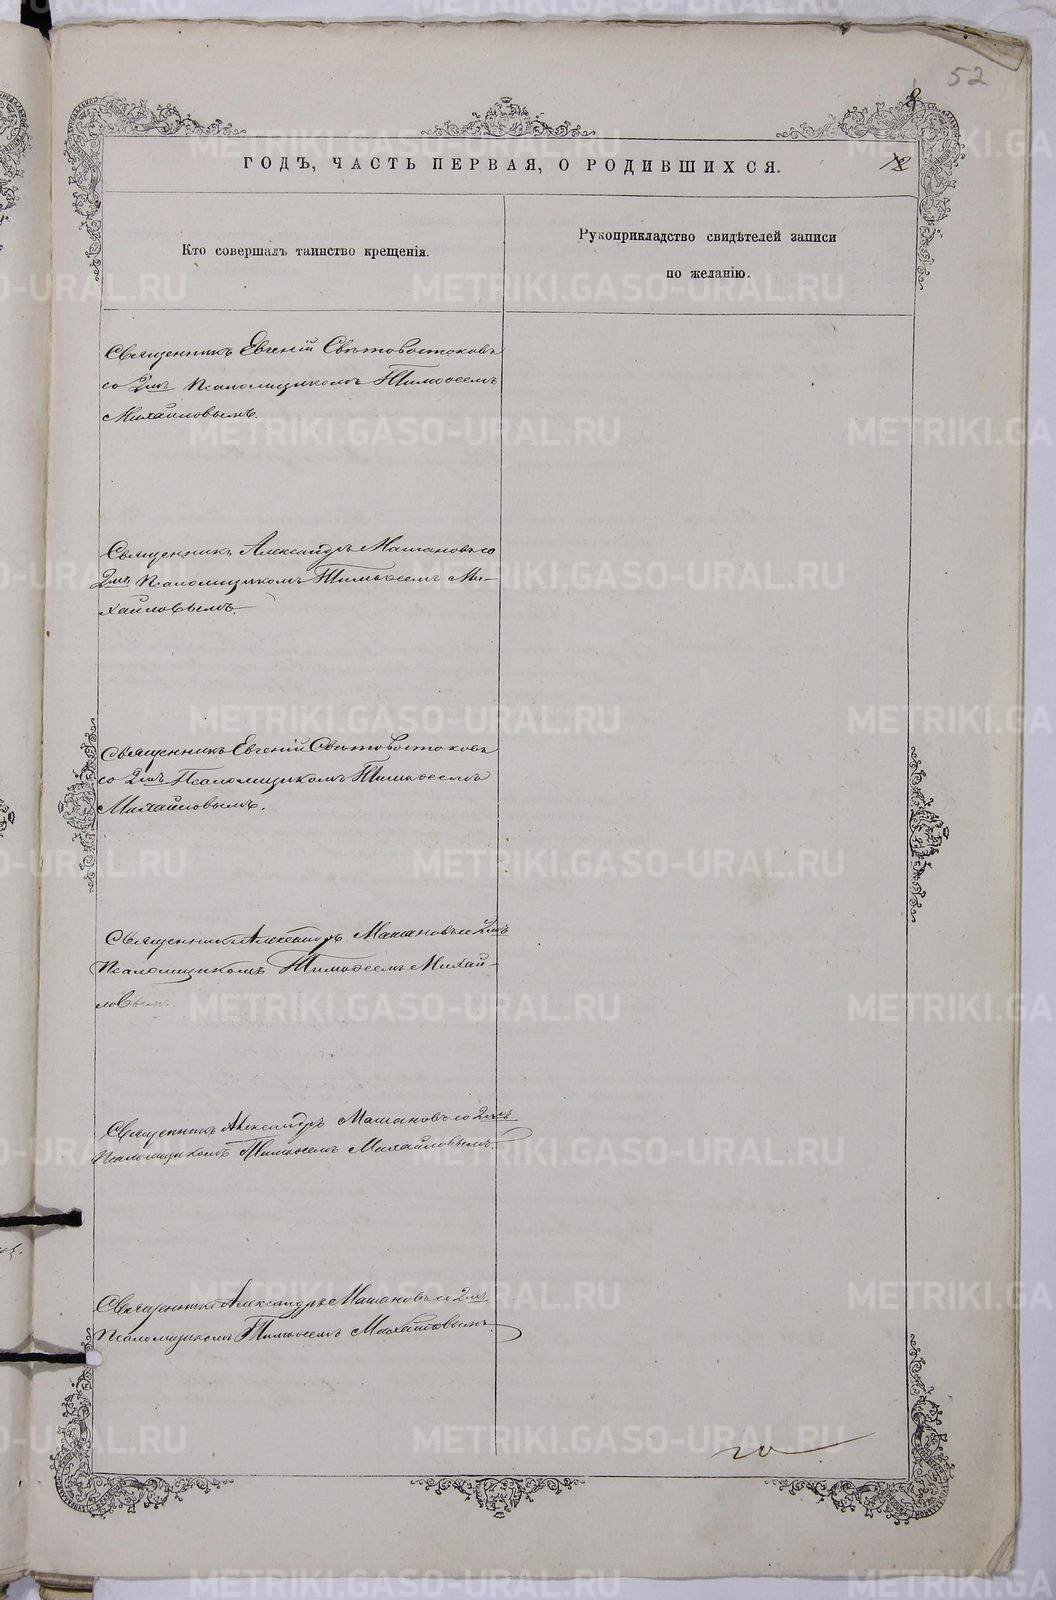 52
8
12
ГОДЪ, ЧАСТЬ ПЕРВАЯ, О РОДИВШИХСЯ.
Кто совершалъ таинство крещенія.
Рукоприкладство свидѣтелей записи
по желанію.
Священникъ Евгеній Свѣтовостоковъ
со 2мъ Псаломщикомъ Тимоѳеемъ
Михайловымъ.
Священникъ Александръ Машановъ со
2мъ Псаломщикомъ Тимоѳеемъ Ми-
хайловымъ.
Священникъ Евгеній Свѣтовостоковъ
со 2мъ Псаломщикомъ Тимоѳеемъ
Михайловымъ.
Священникъ Александръ Машановъ со 2мъ
Псаломщикомъ Тимоѳеемъ Михай-
ловымъ
Священникъ Александръ Машановъ со 2мъ
Псаломщикомъ Тимоѳеемъ Михайловымъ.
Священникъ Александръ Машановъ со 2мъ
Псаломщикомъ Тимоѳеемъ Михайловымъ.
METRIKI.GASO-URAL.RU